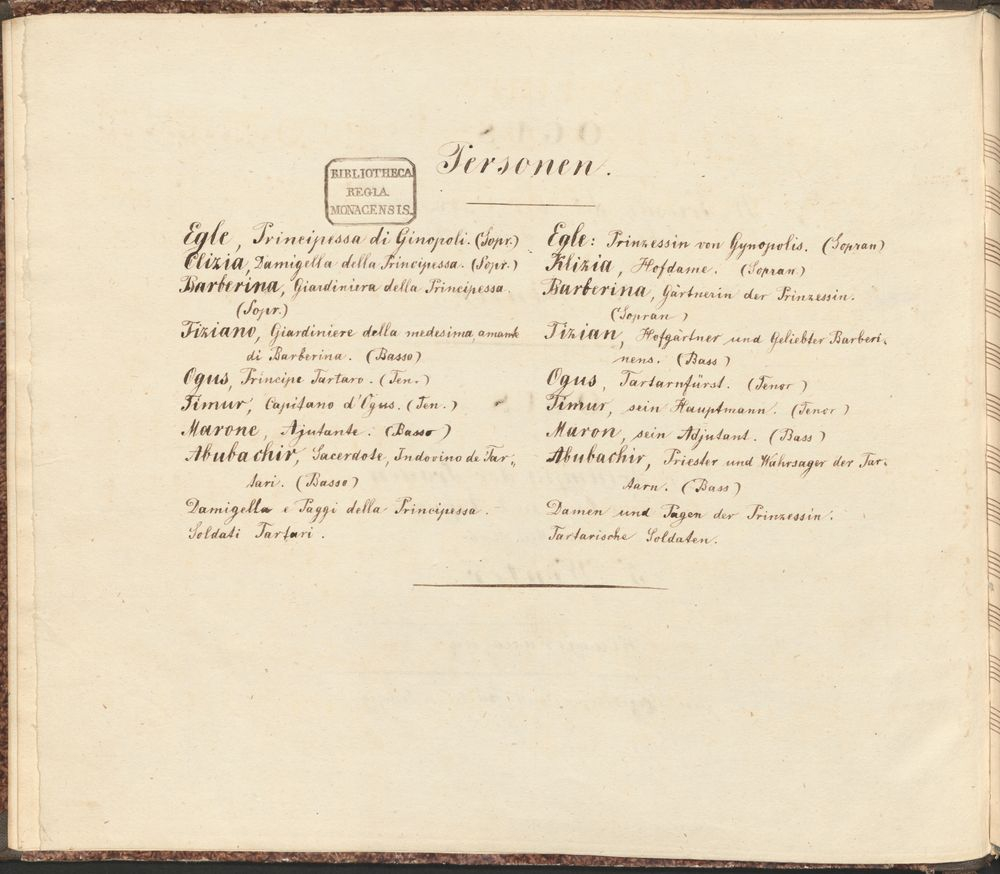 Personen.
BIBLIOTHECA
REGIA
MONACENSIS.
Egle, Principessa di Ginopoli. (Sopr.)
Clizia, Damigella della Principessa. (Sopr.)
Barberina, Giardiniera della Principessa.
(Sopr.)
Tiziano, Giardiniere della medesima, amante
di Barberina. (Basso)
Ogus, Principe Tartaro. (Ten.)
Timur, Capitano d'Ogus. (Ten.)
Marone, Ajutante. (Basso)
Abubachir, Sacerdote, Indovino de Tar„
tari. (Basso)
Damigella e Paggi della Principessa.
Soldati Tartari.
Egle: Prinzessin von Gynopolis. (Sopran)
Klizia, Hofdame. (Sopran)
Barberina, Gärtnerin der Prinzessin.
(Sopran)
Tizian, Hofgärtner und Geliebter Barberi-
nens. (Bass)
Ogus, Tartarnfürst. (Tenor)
Timur, sein Hauptmann. (Tenor)
Maron, sein Adjutant. (Bass)
Abubachir, Priester und Wahrsager der Tar-
tarn. (Bass)
Damen und Pagen der Prinzessin.
Tartarische Soldaten.